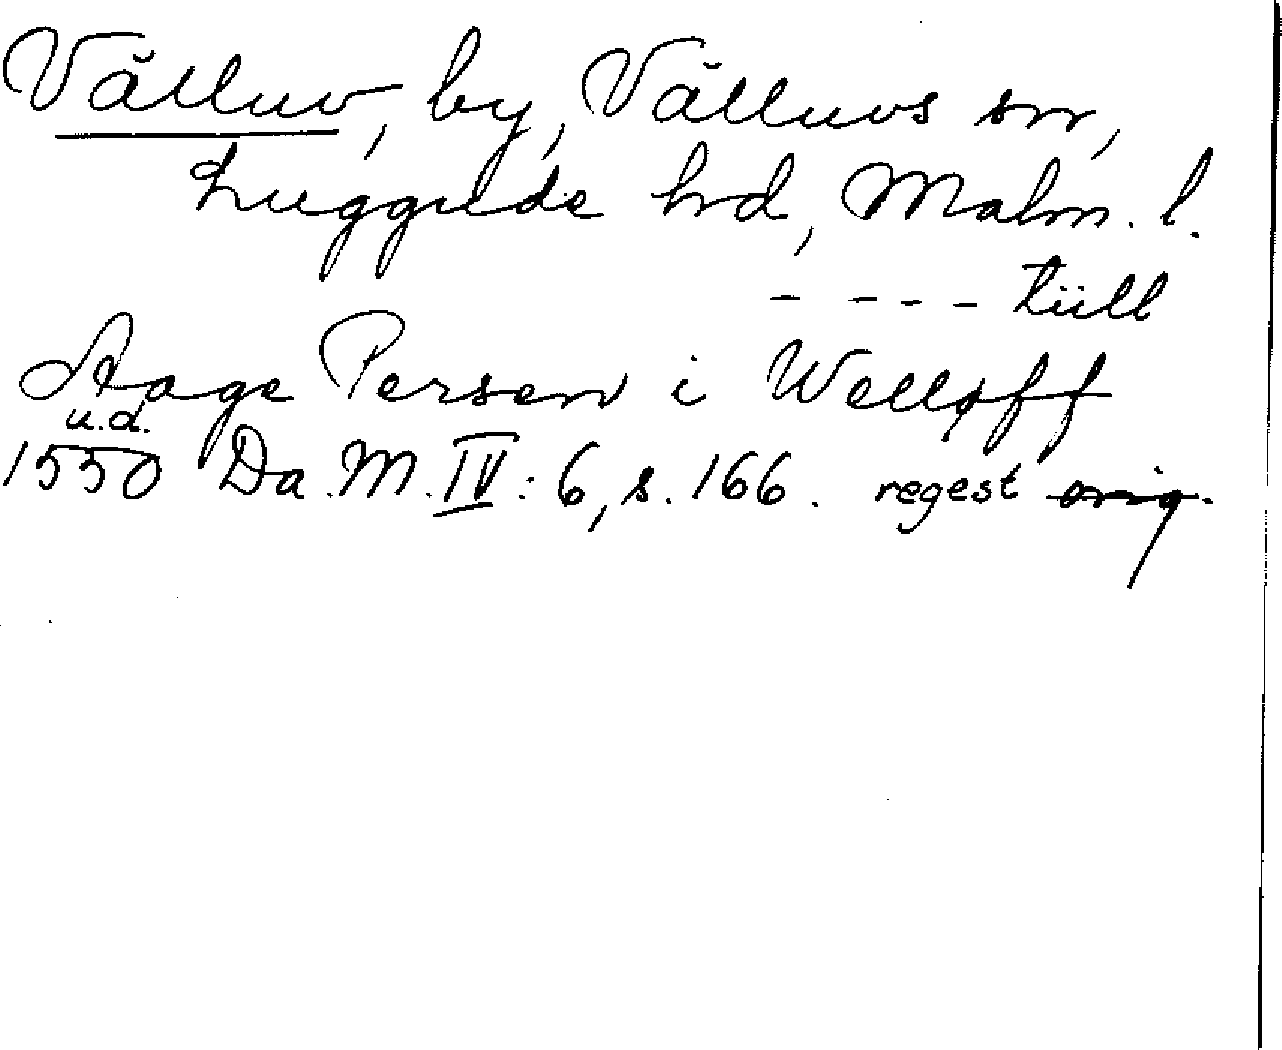 Välluv, by, Välluvs sn,
Luggude hd, Malm. l.
- - - - tiill
Aage Persen i Welløff
u.d.
1550 Da. M. IV: 6, s. 166. regest orig.